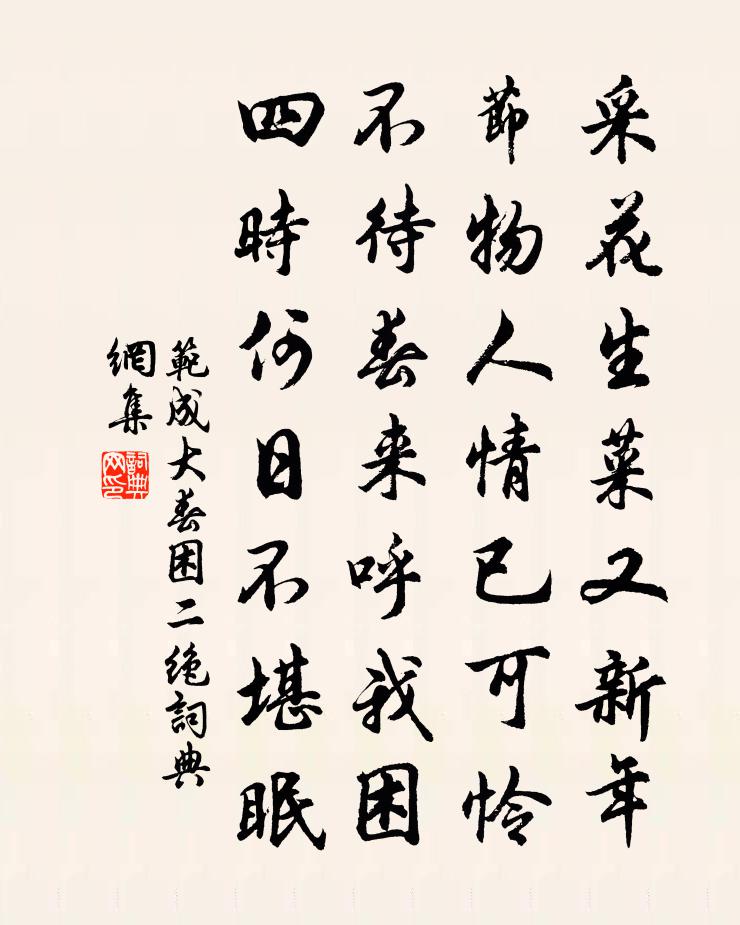 采花生菜又新年
節物人情已可怜
不待春来呼我困
四時何日不堪眠
範成大春困二绝詞典
網集
詞典網印